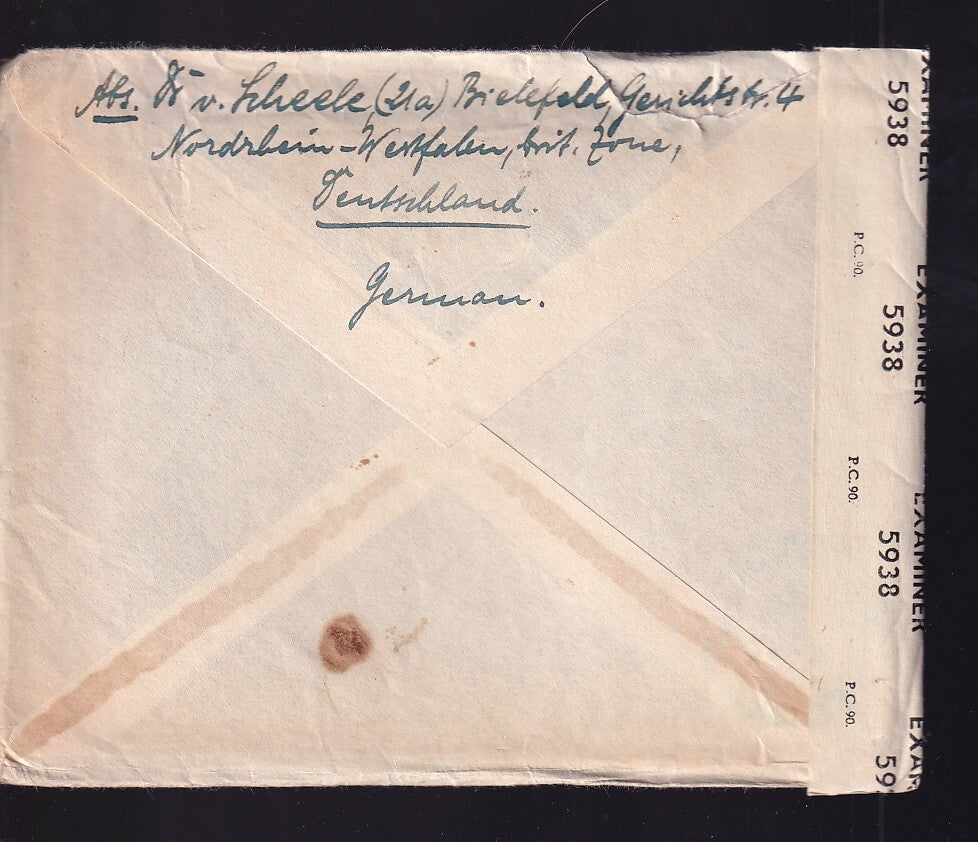 Abs. Dr v. Scheele, (21a) Bielefeld, Gerichtstr. 4
Nordrhein-Westfalen, brit. Zone,
Deutschland.
German.
EXAMINER
5938
P.C. 90.
EXAMINER
5938
P.C. 90.
EXAMINER
5938
P.C. 90.
EXAM
59